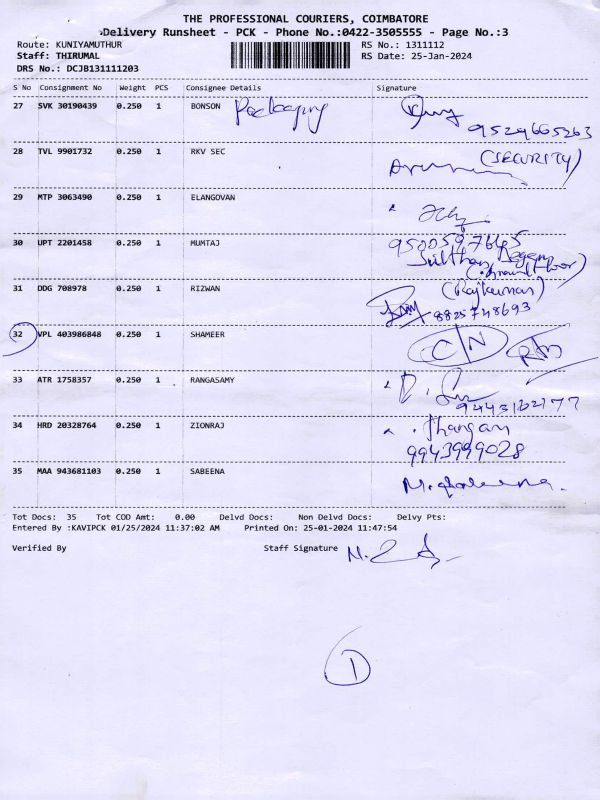 THE PROFESSIONAL COURIERS, COIMBATORE
Delivery Runsheet - PCK - Phone No.:0422-3505555 - Page No.:3
Route: KUNIYAMUTHUR RS No.: 1311112
Staff: THIRUMAL RS Date: 25-Jan-2024
DRS No.: DCJB131111203
S No Consignment No Weight PCS Consignee Details Signature
27 SVK 30190439 0.250 1 BONSON
9529665263
28 TVL 9901732 0.250 1 RKV SEC (SECURITY)
29 MTP 3063490 0.250 1 ELANGOVAN
30 UPT 2201458 0.250 1 MUMTAJ 9500597665
31 DDG 708978 0.250 1 RIZWAN (Rajkumar)
8825748693
32 VPL 403986848 0.250 1 SHAMEER C/N
33 ATR 1758357 0.250 1 RANGASAMY
9443162177
34 HRD 20328764 0.250 1 ZIONRAJ Thangam
9943999028
35 MAA 943681103 0.250 1 SABEENA
Tot Docs: 35 Tot COD Amt: 0.00 Delvd Docs: Non Delvd Docs: Delvy Pts:
Entered By :KAVIPCK 01/25/2024 11:37:02 AM Printed On: 25-01-2024 11:47:54
Verified By Staff Signature
1